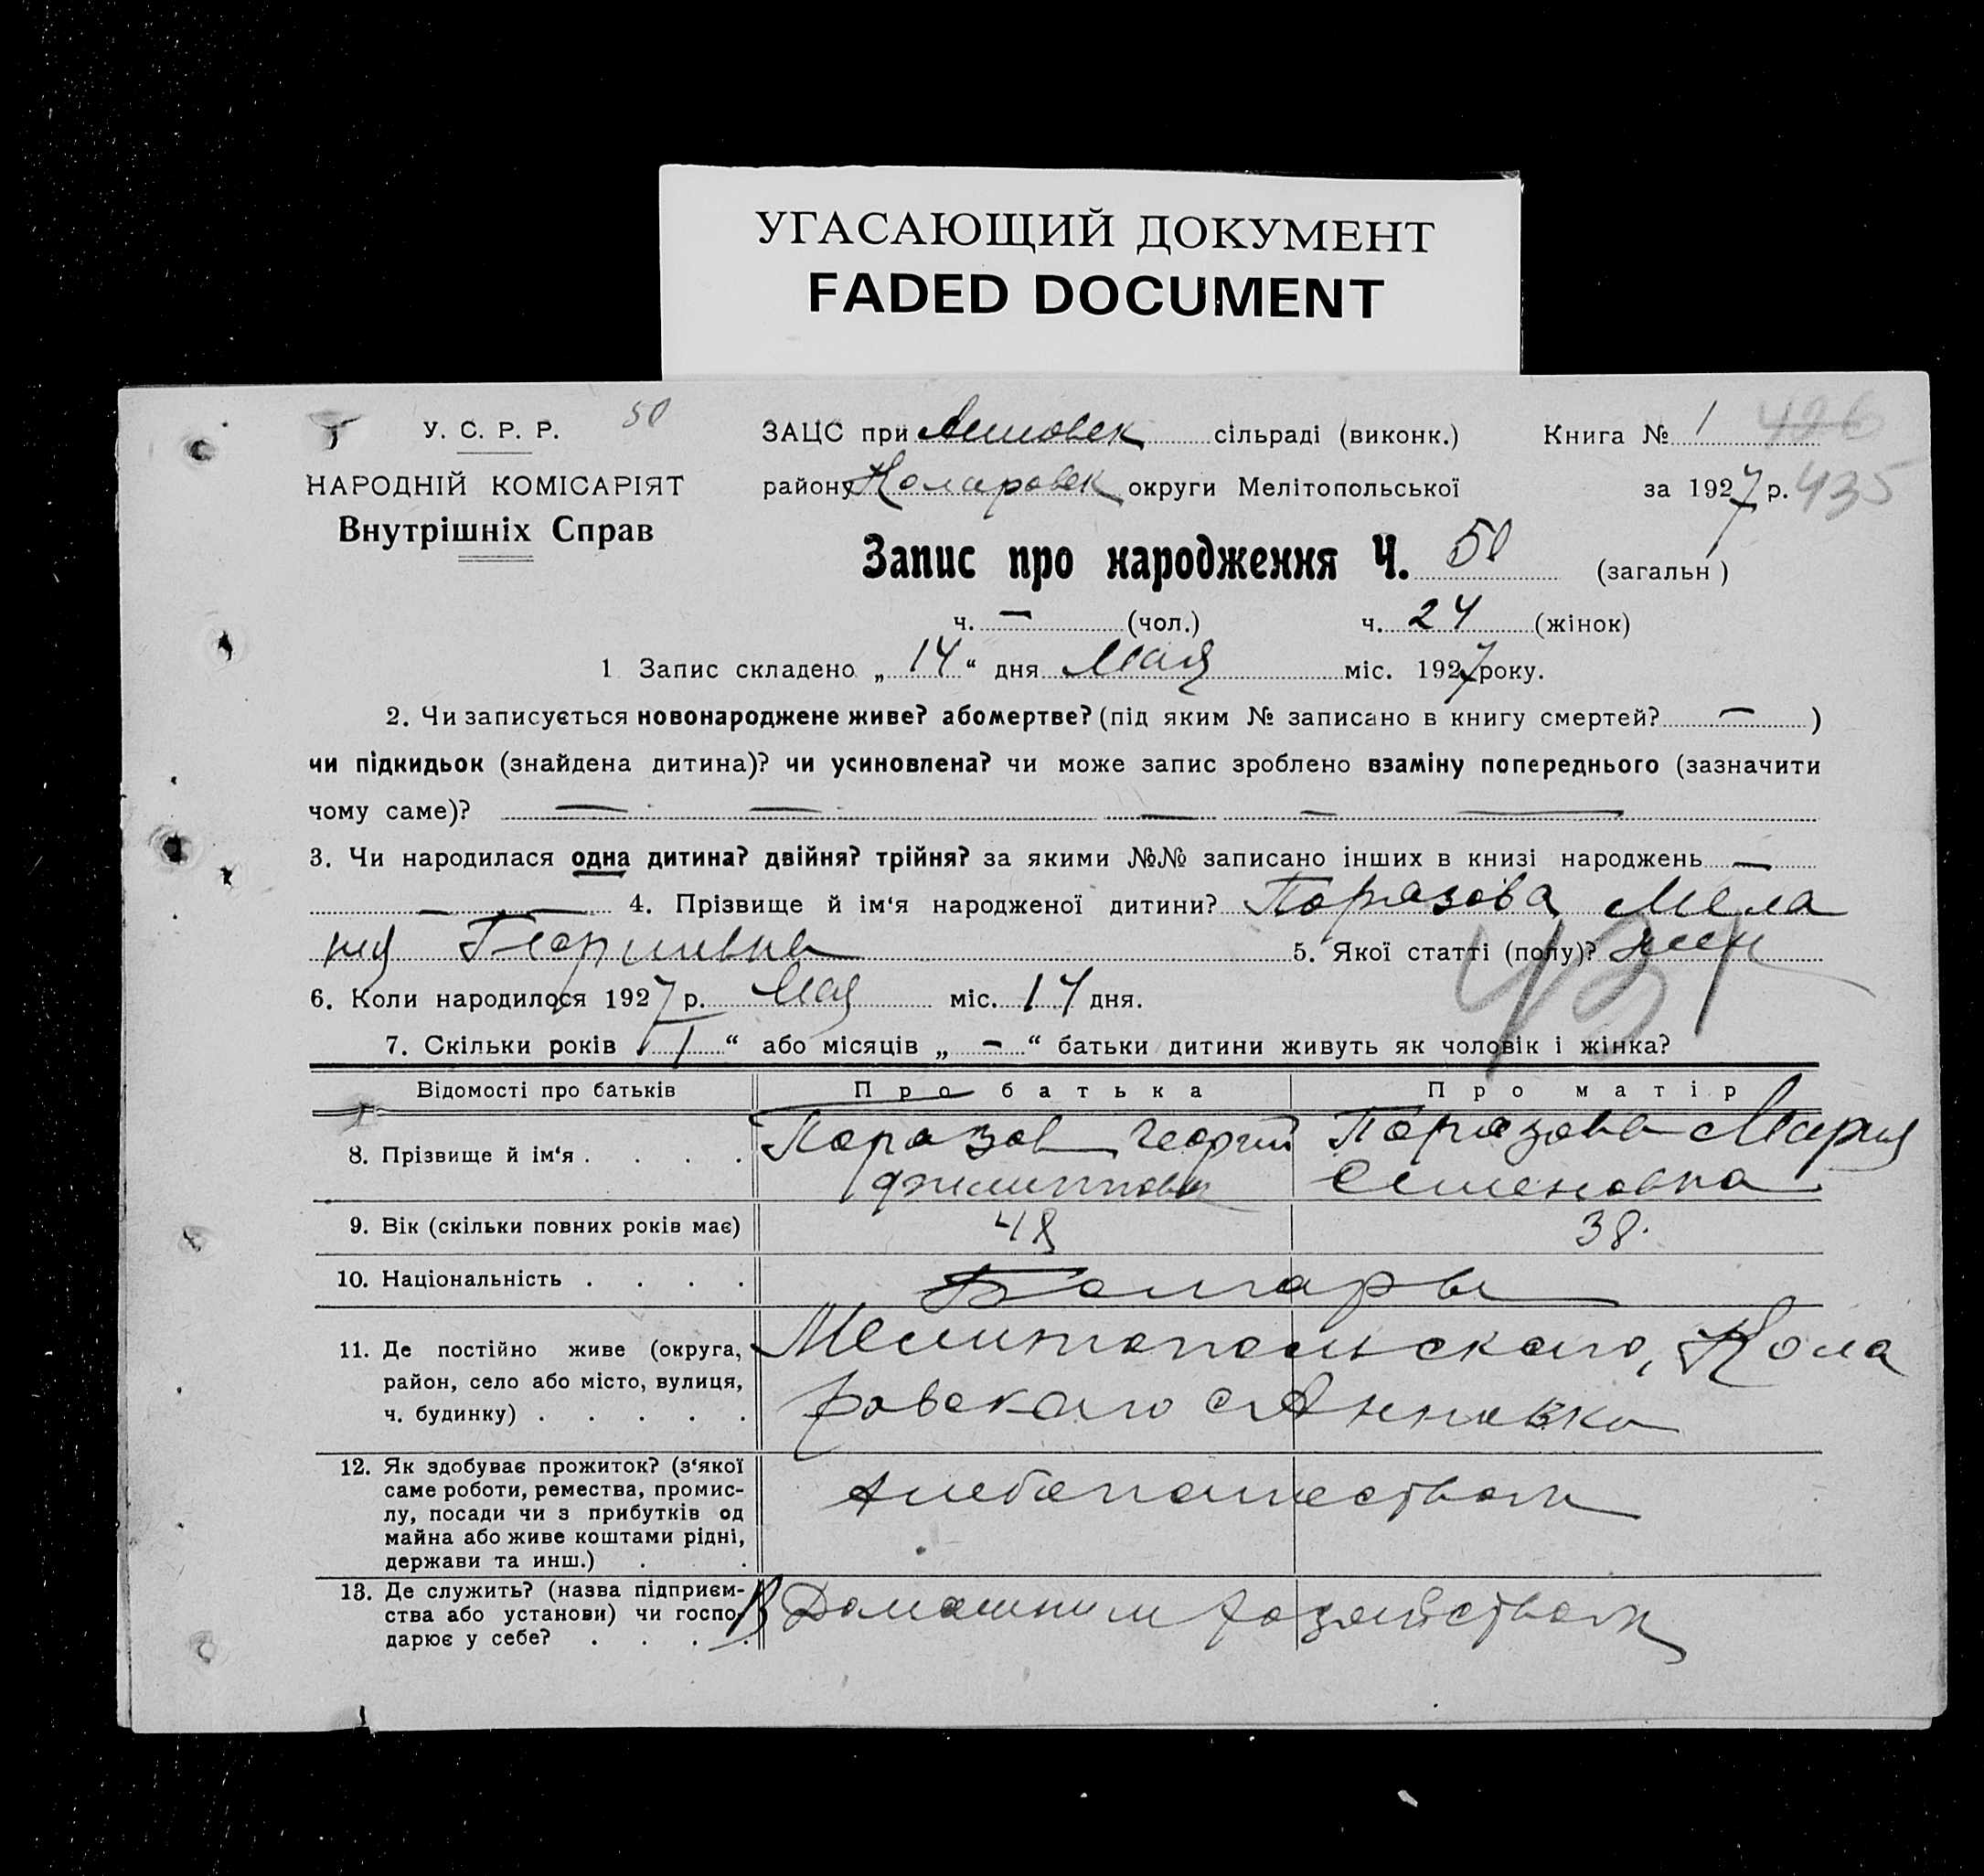 УГАСАЮЩИЙ ДОКУМЕНТ
FADED DOCUMENT
У. С. Р. Р. 50
НАРОДНІЙ КОМІСАРІЯТ
Внутрішніх Справ
ЗАЦС при сільраді (виконк.) Книга № 1 426
району Коларовск округи Мелітопольської за 1927 р. 435
Запис про народження Ч. 50 (загальн)
ч. — (чол.) ч. 24 (жінок)
1 Запис складено „14“ дня Мая міс. 1927 року.
2. Чи записується новонароджене живе? або мертве? (під яким № записано в книгу смертей? — )
чи підкидьок (знайдена дитина)? чи усиновлена? чи може запис зроблено взаміну попереднього (зазначити
чому саме)? — — — — —
3. Чи народилася одна дитина? двійня? трійня? за якими №№ записано інших в книзі народжень —
— — 4. Прізвище й ім‘я народженої дитини? Поразова Мела
ния 5. Якої статті (полу)? жен
6. Коли народилося 1927 р. Мая міс. 14 дня.
7. Скільки років “ або місяців „ — “ батьки дитини живуть як чоловік і жінка?
Відомості про батьків Про батька Про матір
8. Прізвище й ім‘я . . . . Поразов Георгий Поразова Мария
Филиппов Семеновна
9. Вік (скільки повних років має) 48 38.
10. Національність . . . . Болгары
11. Де постійно живе (округа, Мелитопольского, Кола
район, село або місто, вулиця, ровского с Анновка
ч. будинку) . . . . .
12. Як здобуває прожиток? (з‘якої
саме роботи, ремества, промис- Хлебопашеством
лу, посади чи з прибутків од
майна або живе коштами рідні,
держави та инш.) . .
13. Де служить? (назва підприєм- Домашним хозяйством
ства або установи) чи госпо-
дарює у себе? . . . .